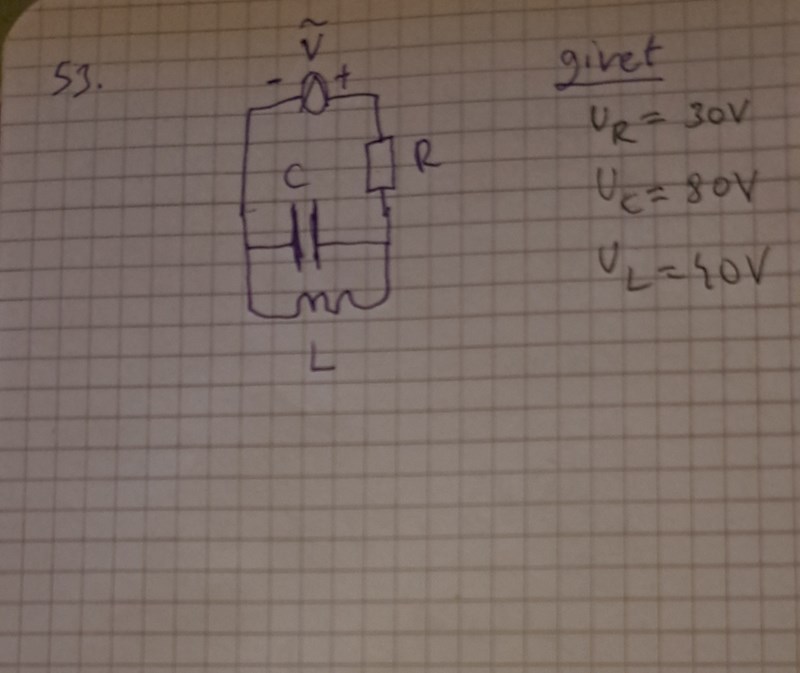 53.
Ṽ
- +
givet
R
U_R = 30V
C
U_C = 80V
U_L = 40V
L